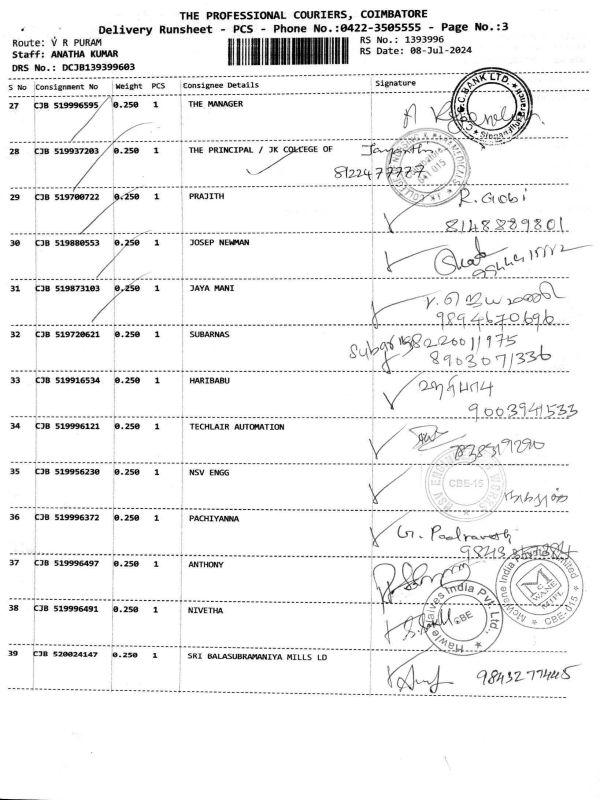 THE PROFESSIONAL COURIERS, COIMBATORE
Delivery Runsheet - PCS - Phone No.:0422-3505555 - Page No.:3
Route: V R PURAM
RS No.: 1393996
Staff: ANATHA KUMAR
RS Date: 08-Jul-2024
DRS No.: DCJB139399603
S No Consignment No Weight PCS Consignee Details Signature
27 CJB 519996595 0.250 1 THE MANAGER
28 CJB 519937203 0.250 1 THE PRINCIPAL / JK COLCEGE OF
8122477777
29 CJB 519700722 0.250 1 PRAJITH R. Gobi
8148889801
30 CJB 519880553 0.250 1 JOSEP NEWMAN
31 CJB 519873103 0.250 1 JAYA MANI
9894670696
32 CJB 519720621 0.250 1 SUBARNAS
8220011975
8903071336
33 CJB 519916534 0.250 1 HARIBABU
9003941533
34 CJB 519996121 0.250 1 TECHLAIR AUTOMATION
35 CJB 519956230 0.250 1 NSV ENGG
CBE-15
36 CJB 519996372 0.250 1 PACHIYANNA
37 CJB 519996497 0.250 1 ANTHONY
38 CJB 519996491 0.250 1 NIVETHA
CBE
CBE-015
39 CJB 520024147 0.250 1 SRI BALASUBRAMANIYA MILLS LD